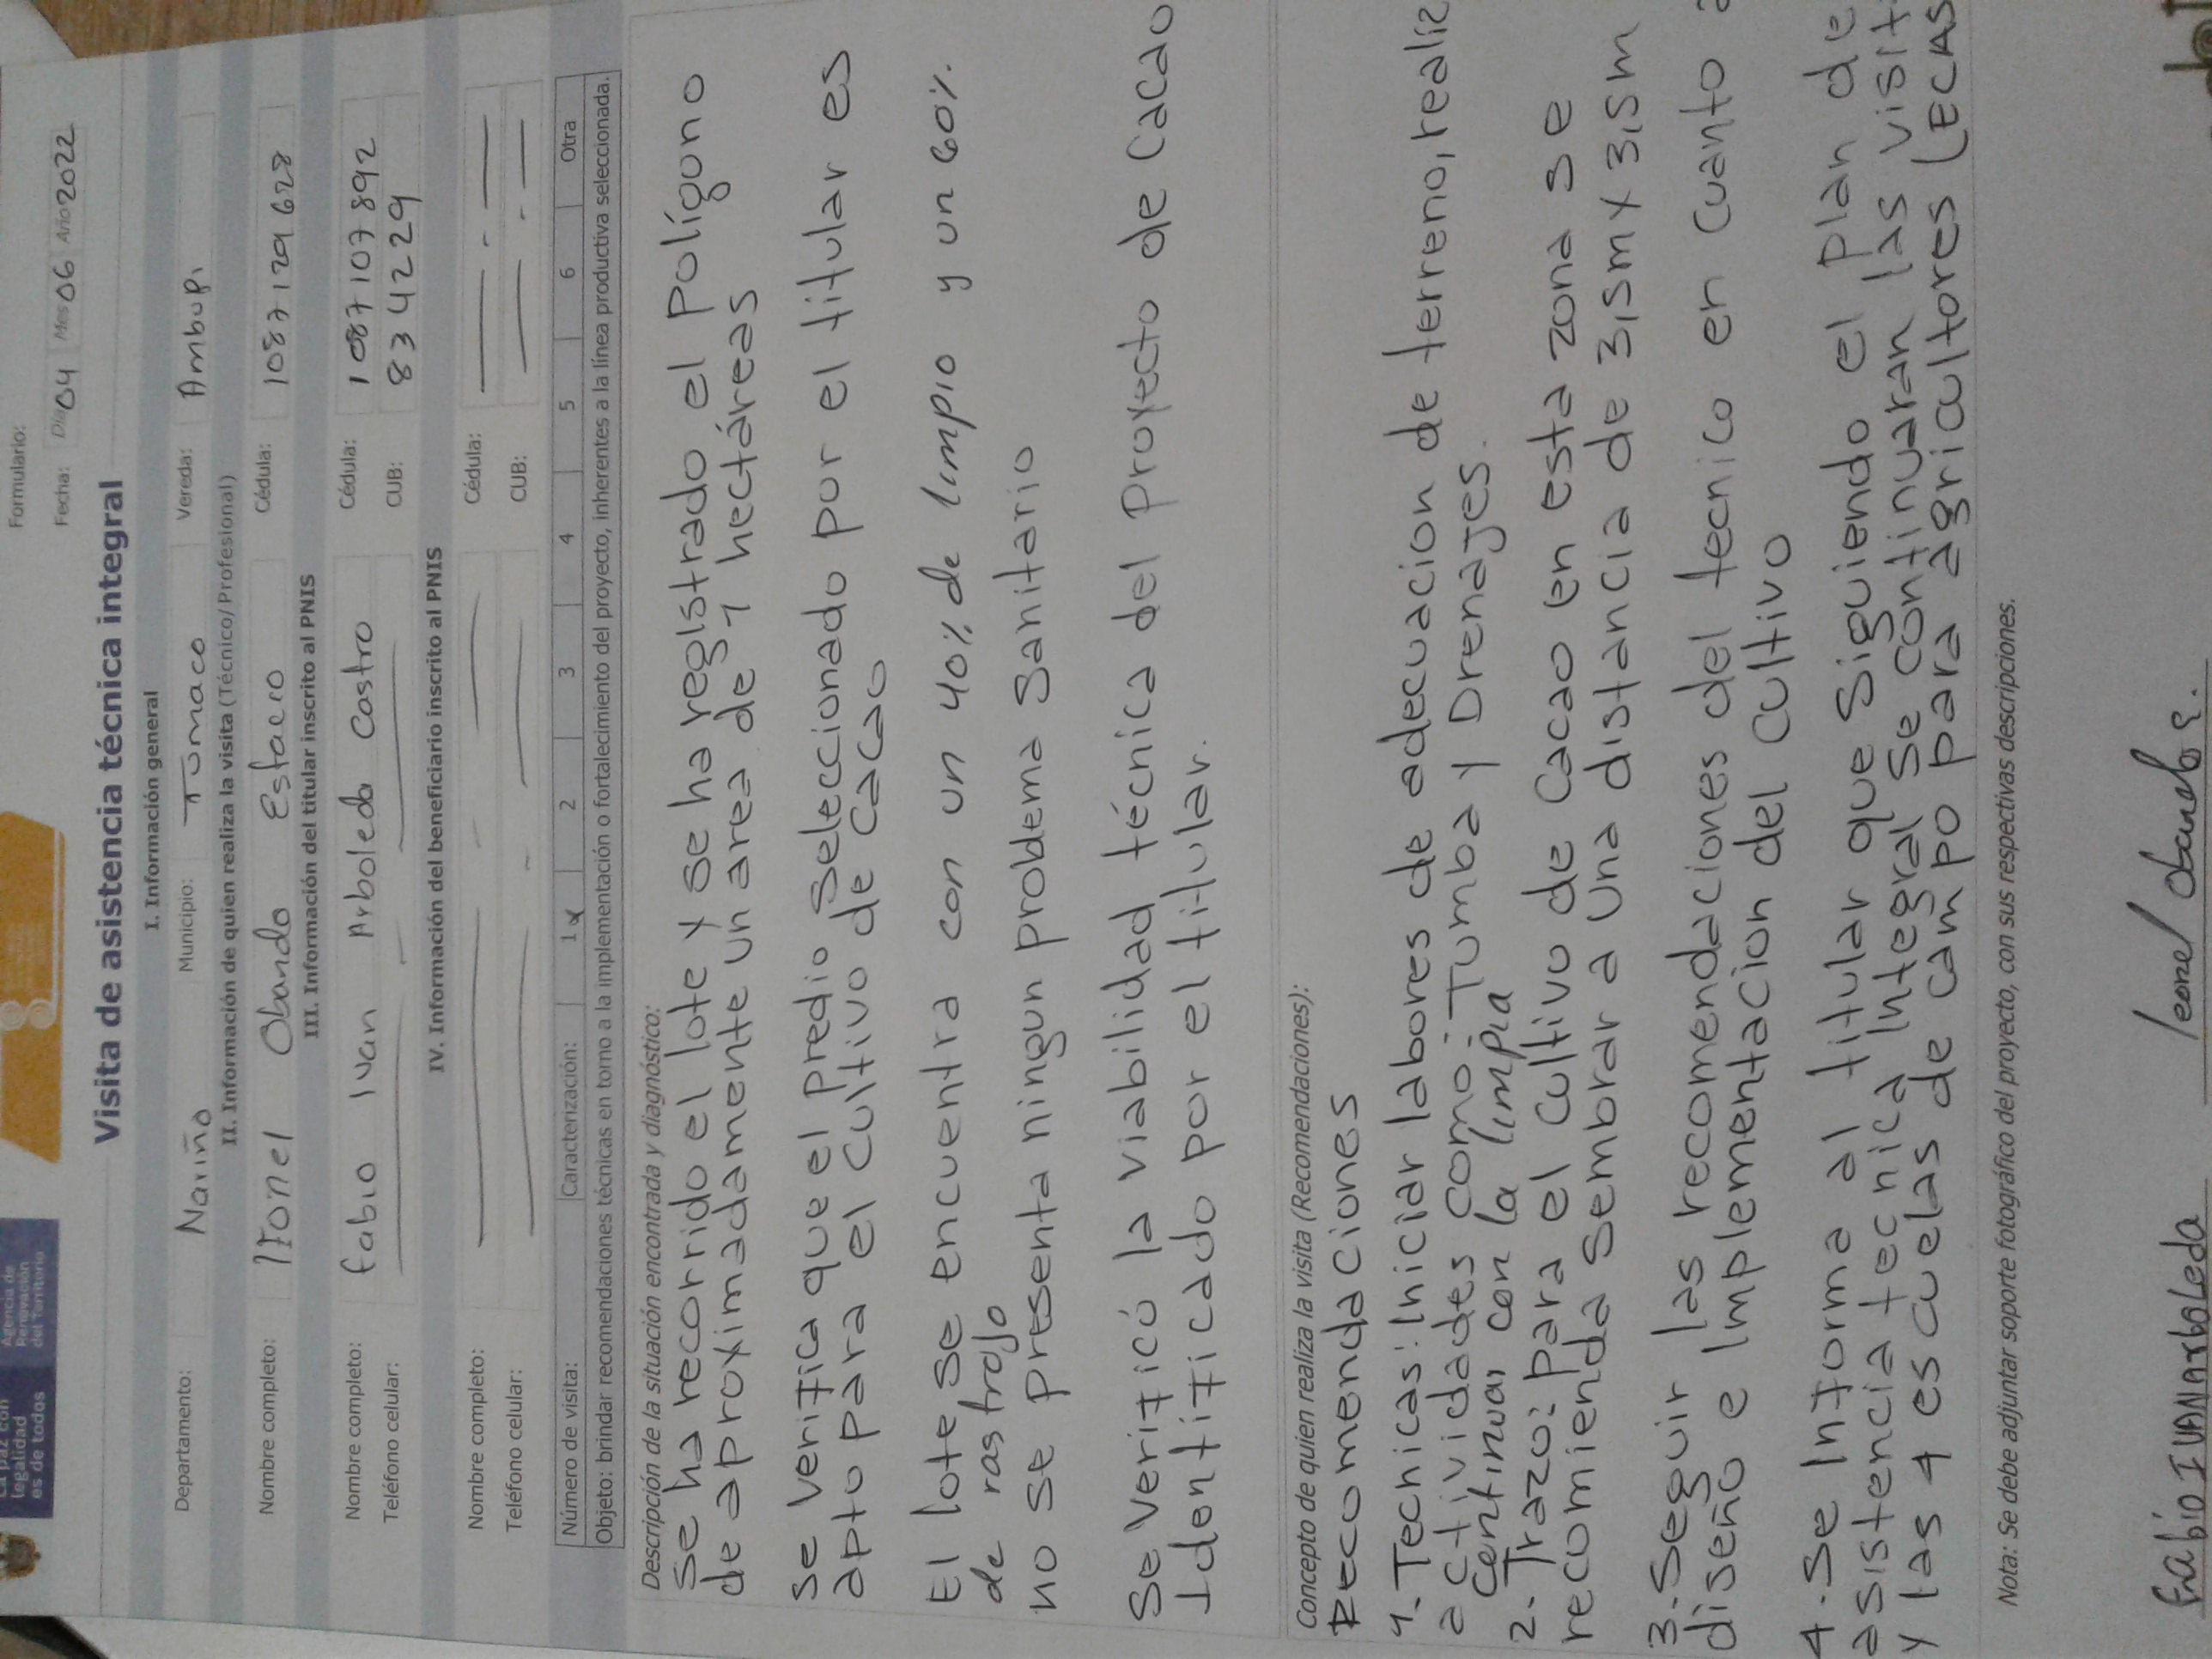 La paz con
legalidad
es de todos
Agencia de
Renovación
del Territorio
Formulario:
Fecha: Día 04 Mes 06 Año 2022
Visita de asistencia técnica integral
I. Información general
Departamento: Nariño Municipio: Tumaco Vereda: Ambupi
II. Información de quien realiza la visita (Técnico/Profesional)
Nombre completo: Obando Estacio Cédula: 1087129628
III. Información del titular inscrito al PNIS
Nombre completo: Fabio Ivan Arboleda Castro Cédula: 1087107892
Teléfono celular: CUB: 8342229
IV. Información del beneficiario inscrito al PNIS
Nombre completo: Cédula:
Teléfono celular: CUB:
Número de visita: Caracterización: 1 x 2 3 4 5 6 Otra
Objeto: brindar recomendaciones técnicas en torno a la implementación o fortalecimiento del proyecto, inherentes a la línea productiva seleccionada.
Descripción de la situación encontrada y diagnóstico:
Se ha recorrido el lote y se ha registrado el polígono
de aproximadamente un area de 1 hectáreas
Se verifica que el predio seleccionado por el titular es
apto para el cultivo de cacao
El lote se encuentra con un 40% de limpio y un 60%
de rastrojo
no se presenta ningun problema sanitario
Se verificó la viabilidad técnica del proyecto de cacao
identificado por el titular.
Concepto de quien realiza la visita (Recomendaciones):
Recomendaciones
1. Tecnicas: Iniciar labores de adecuacion de terreno, realiz
actividades como: Tumba y Drenajes.
Continuar con la limpia
2. Trazo: para el cultivo de cacao en esta zona se
recomienda sembrar a una distancia de 3,5m x 3,5m
3. Seguir las recomendaciones del tecnico en cuanto a
diseño e implementacion del cultivo
4. Se informa al titular que siguiendo el plan de
asistencia tecnica integral se continuaran las visit
y las 4 escuelas de campo para agricultores (ECAS
Nota: Se debe adjuntar soporte fotográfico del proyecto, con sus respectivas descripciones.
Fabio IVAN Arboleda